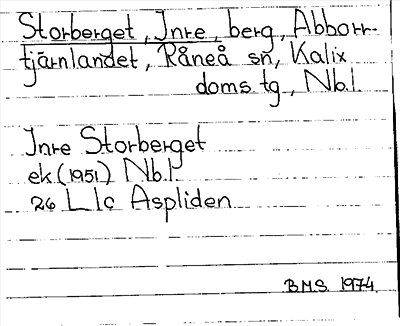 Storberget, Inre, berg, Abborr-
tjärnlandet, Råneå sn, Kalix
doms. tg., Nb.l.
Inre Storberget
ek (1951) Nb.l.
26 L 1c Aspliden
B.M.S. 1974.